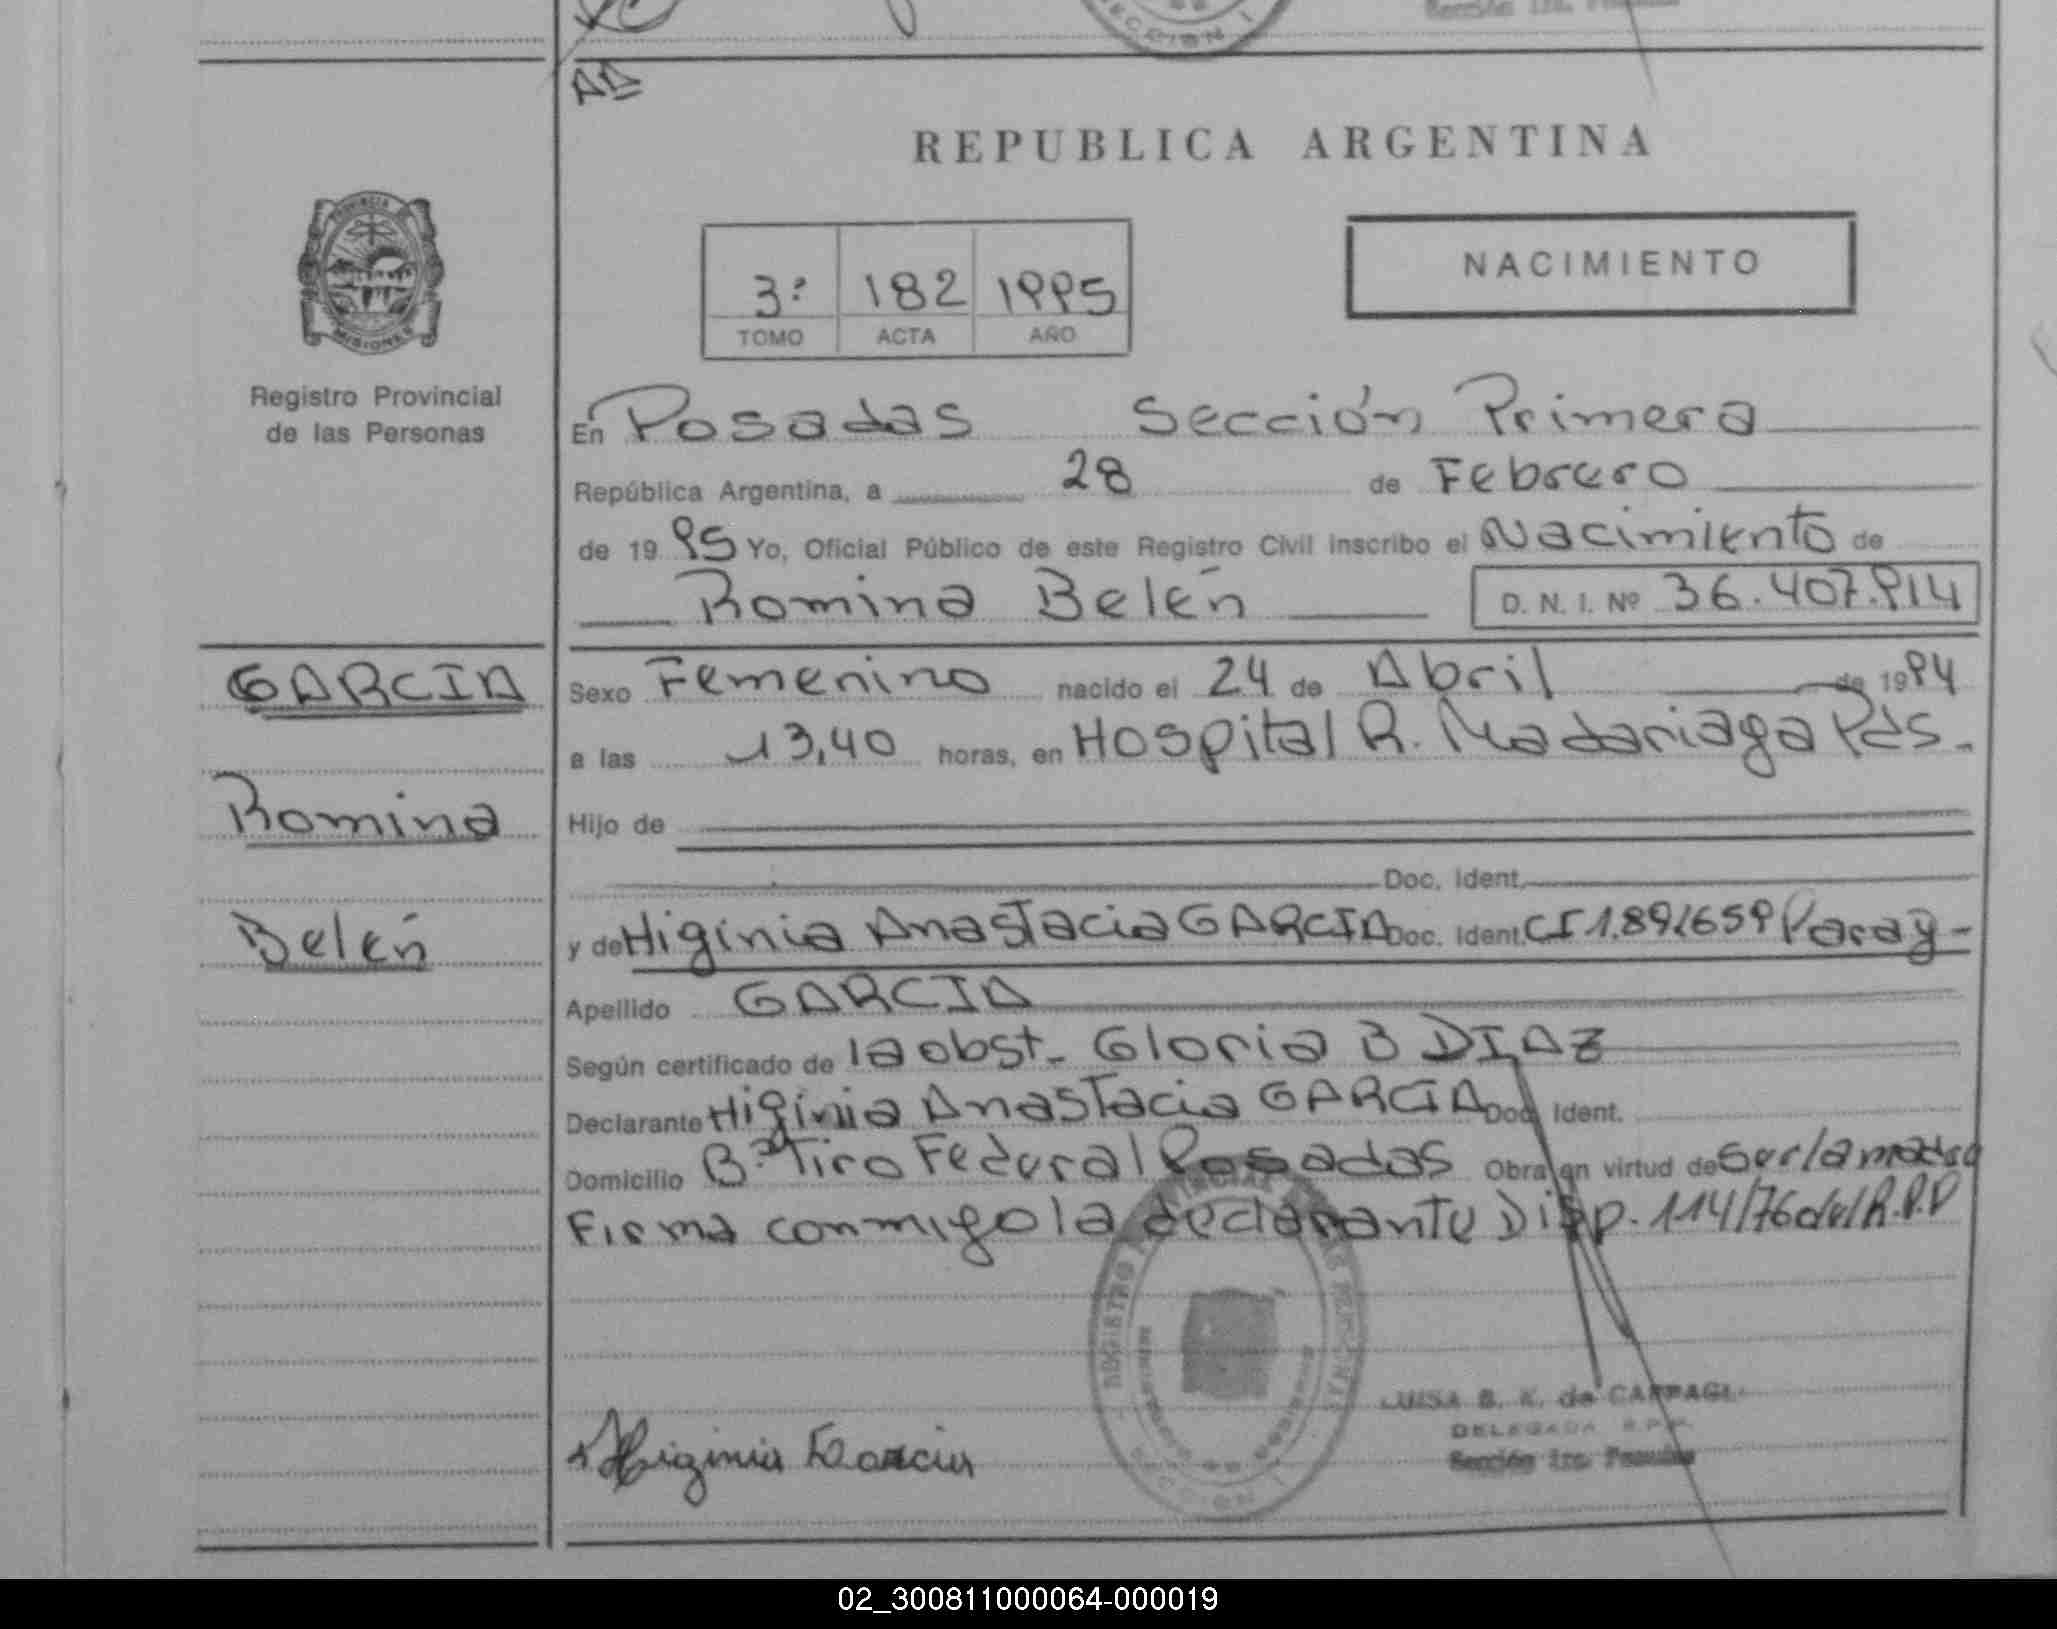 AD
REPUBLICA ARGENTINA
PROVINCIA DE
MISIONES
Registro Provincial
de las Personas
3º 182 1995
TOMO ACTA AÑO
NACIMIENTO
En Posadas Sección Primera
República Argentina, a 28 de Febrero
de 19 95 Yo, Oficial Público de este Registro Civil inscribo el Nacimiento de
Romina Belén D. N. I. Nº 36.407.914
GARCIA
Romina
Belén
Sexo Femenino nacido el 24 de Abril de 1994
a las 13,40 horas, en Hospital R. Madariaga Pds.
Hijo de
Doc. Ident.
y de Higinia Anastacia GARCIA Doc. Ident. CI 1.891659 Parag-
Apellido GARCIA
Según certificado de la obst. Gloria B DIAZ
Declarante Higinia Anastacia GARCIA Doc. Ident.
Domicilio Bº Tiro Federal Posadas Obra en virtud de ser la madre
Firma conmigo la declarante Disp. 114/76 del R.P.P
Higinia Garcia
LUISA B. K. de
DELEGADA R.P.P.
Sección 1ra. Posadas
02_300811000064-000019